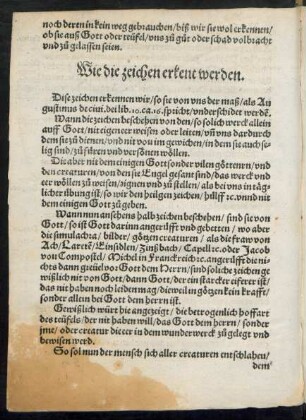 noch deren in kein weg gebrauchen / biß wir sie wol erkennen /
ob sie auß Gott oder teüfel / vns zů gůt oder schad volbracht
vnd zů gelassen seien.
Wie die zeichen erkent werden.
Dise zeichen erkennen wir / so sie von vns der maß / als Au
gustinus de ciui. dei lib. 10. ca. 16. spricht / vnderschidet werdẽ.
Wann die zeichen beschehen von den / so solich werck allein
auff Gott / nit eigener weisen oder leiten / vň vns dardurch
dem selben zů dienen / vnd nit wo im gewichen / in dem sie auch selig
sind / zů füren vnd versönen wöllen.
Die aber nit dem einigen Gott sonder vilen göttern / vnd
den creaturen / von den sie Engel gesant sind / das werck vnd
eer wöllen zů weisen / eignen vnd zů stellen / als bei vns in täg
licher übung ist / so wir den heilgen zeichen / hülff ꝛc. vnnd nit
dem einigen Gott zů geben.
Wann nun ansehens halb zeichen beschehen / sind sie von
Gott / so ist Gott darinn angerüfft vnd gebetten / wo aber
die simulachra / bilder / götzen creaturen / als die fraw von
Ach / Laretẽ / Einsidlen / Zinßbach / Capell ꝛc. oder Jacob
von Compostel / Michel in Franckreich ꝛc. angerüfft die ni
chts dann zeiüel vor Gott dem Herrn / sind soliche zeichen ge
wißlich nit von Gott / dann Gott / der ein starcker eiferer ist /
das nit haben noch leiden mag / die weil ein götzen kein krafft /
sonder allein bei Gott dem herrn ist.
Gewißlich würt hie angezeigt / die betrogenlich hoffart
des teüfels / der nit haben will / das Gott dem herrn / sonder
jme / oder creatur die eer in dem wunderwerck zů gelegt vnd
bewisen werd.
So sol nun der mensch sich aller creaturen entschlahen /
dem